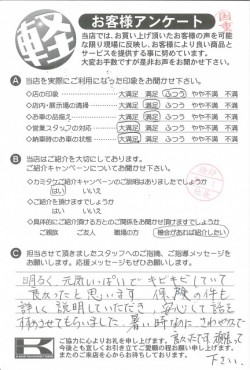 軽
お客様アンケート
当店では、お買い上げ頂いたお客様の声を可能
な限り現場に反映し、お客様により良い商品と
サービスを提供する事に努めています。
大変お手数ですが是非お声をお聞かせ下さい。
A 当店を実際にご利用になった印象をお聞かせ下さい。
◇店の印象 大満足 満足 ふつう やや不満 不満
◇店内・展示場の清掃 大満足 満足 ふつう やや不満 不満
◇お車の品揃え 大満足 満足 ふつう やや不満 不満
◇営業スタッフの対応 大満足 満足 ふつう やや不満 不満
◇納車時のお車の状態 大満足 満足 ふつう やや不満 不満
B 当店はご紹介を大切にしております。
ご紹介キャンペーンについてお聞かせ下さい。
◇カミタケご紹介キャンペーンのご説明はありましたでしょうか
はい いいえ
◇ご紹介を頂けますでしょうか
はい いいえ
◇具体的にご紹介頂ける方とのご関係をお聞かせ頂けますでしょうか
ご親族 ご友人 職場の方 機会があれば紹介したい
C 担当させて頂きましたスタッフへのご指摘、ご指導メッセージを
お願いします。応援メッセージもぜひお願いします。
明るく、元気いっぱいで キビキビしていて
良かったと思います 保険の件も
詳しく説明していただき、安心して話を
すすめさせてもらいました。暑い時なのに さわやかで
よかったです。頑張って
下さい
ご協力に心よりお礼を申し上げます。
今後とも宜しくお引き立てご愛顧の程お願い申し上げます。
またのご来店を心からお待ちしております。